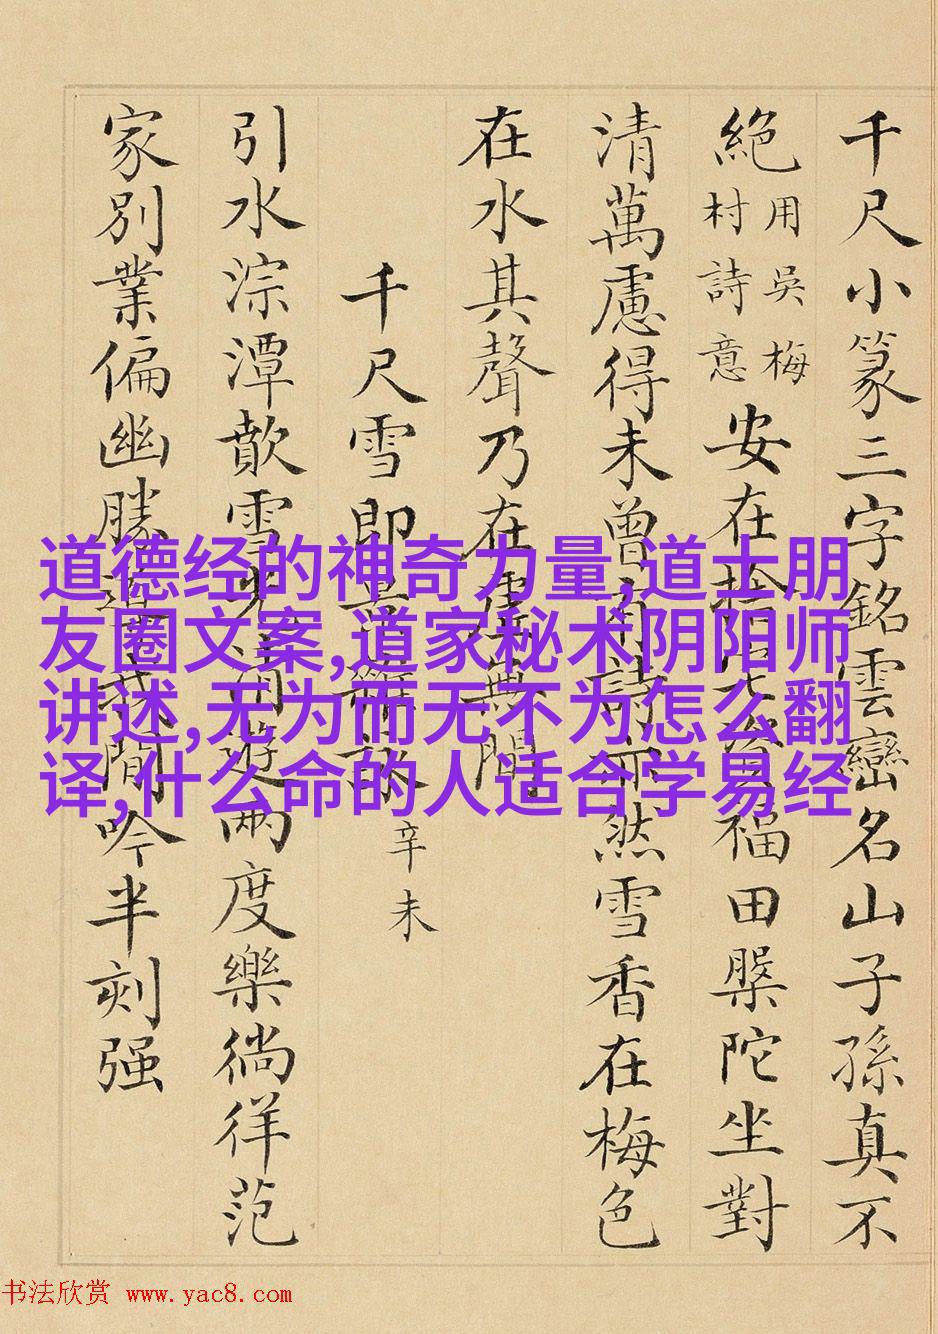 千尺小篆三字銘雲巒名山子孫真不
絕
用吳梅
村詩意
安在福田槃陀坐對
清萬慮得未曾有詩然雪香在梅色
在水其聲乃在虛無間
千尺雪即
辛未
引水淙潭歕雪光清遊兩度樂徜徉范
家別業偏幽勝閒吟半刻强
道德经的神奇力量,道士朋
友圈文案,道家秘术阴阳师
讲述,无为而无不为怎么翻
译,什么命的人适合学易经
书法欣赏 www.yac8.com